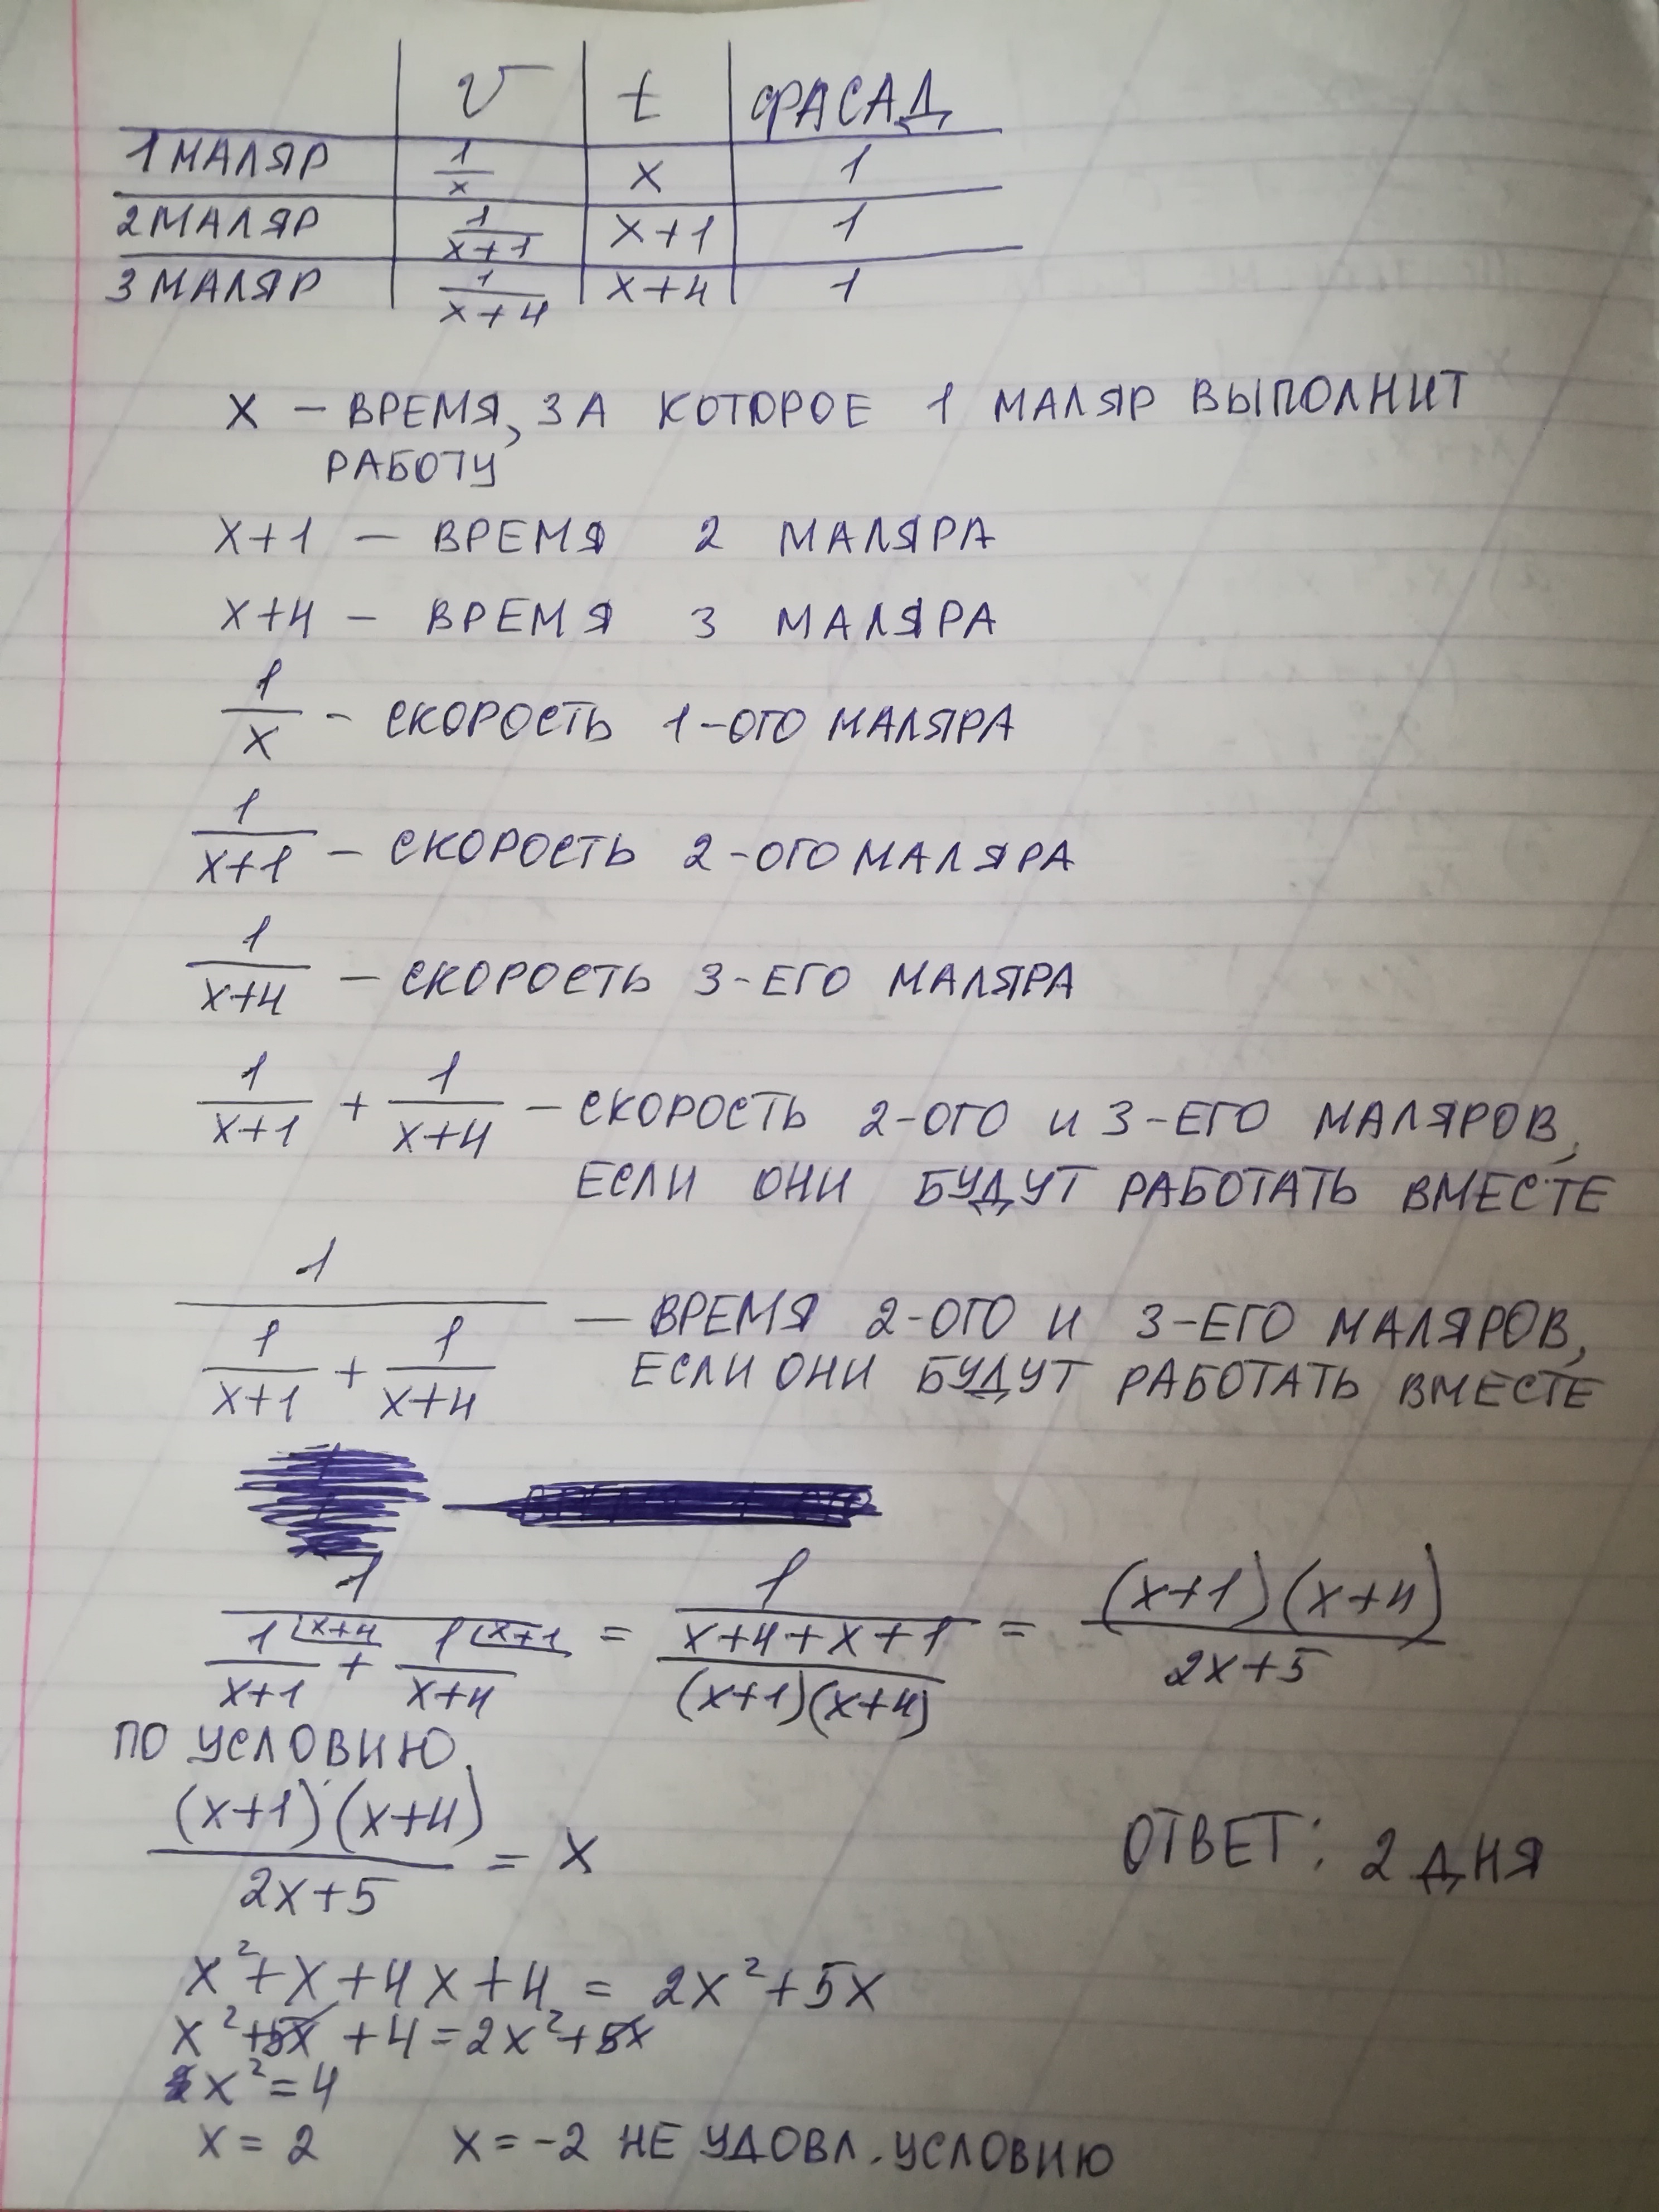 v t ФАСАД
1 МАЛЯР 1/x x 1
2 МАЛЯР 1/(x+1) x+1 1
3 МАЛЯР 1/(x+4) x+4 1
x – ВРЕМЯ, ЗА КОТОРОЕ 1 МАЛЯР ВЫПОЛНИТ
РАБОТУ
x+1 – ВРЕМЯ 2 МАЛЯРА
x+4 – ВРЕМЯ 3 МАЛЯРА
1/x – СКОРОСТЬ 1-ОГО МАЛЯРА
1/(x+1) – СКОРОСТЬ 2-ОГО МАЛЯРА
1/(x+4) – СКОРОСТЬ 3-ЕГО МАЛЯРА
1/(x+1) + 1/(x+4) – СКОРОСТЬ 2-ОГО И 3-ЕГО МАЛЯРОВ,
ЕСЛИ ОНИ БУДУТ РАБОТАТЬ ВМЕСТЕ
1/(1/(x+1) + 1/(x+4)) – ВРЕМЯ 2-ОГО И 3-ЕГО МАЛЯРОВ,
ЕСЛИ ОНИ БУДУТ РАБОТАТЬ ВМЕСТЕ
1/(1 (x+4)/(x+1) + 1 (x+1)/(x+4)) = 1/((x+4+x+1)/((x+1)(x+4))) = (x+1)(x+4)/(2x+5)
ПО УСЛОВИЮ
(x+1)(x+4)/(2x+5) = x
ОТВЕТ: 2 ДНЯ
x²+x+4x+4 = 2x²+5x
x²+5x+4=2x²+5x
x²=4
x=2 x=-2 НЕ УДОВЛ. УСЛОВИЮ